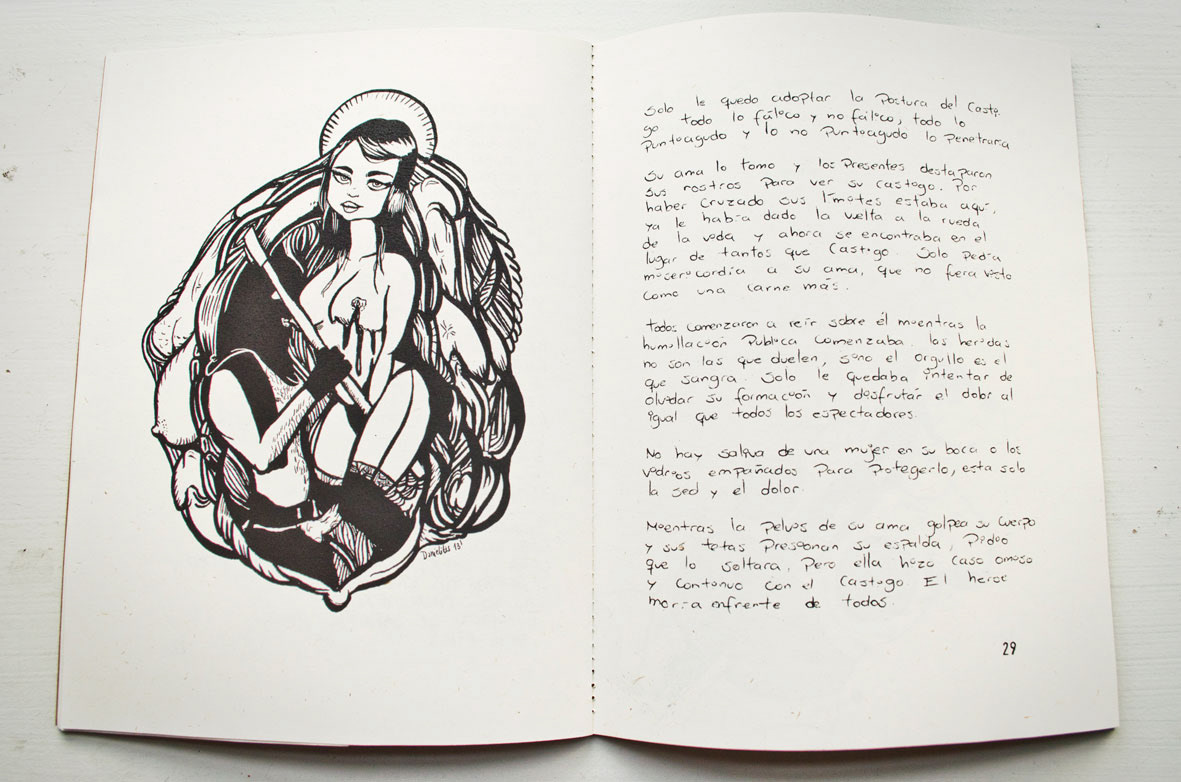 Solo le quedo adoptar la Postura del Casti
go todo lo fálico y no fálico, todo lo
Puntiagudo y lo no Puntiagudo lo Penetraria
Su ama lo tomo y los Presentes destaparon
sus rostros Para ver su castigo. Por
haber cruzado sus límites estaba aquí,
ya le había dado la vuelta a la rueda
de la vida y ahora se encontraba en el
lugar de tantos que Castigo. Solo Pedía
misericordia a su ama, que no fera visto
como una carne más.
Todos comenzaron a reír sobre él mientras la
humillación Publica comenzaba. los heridas
no son las que duelen, sino el orgullo es el
que sangra. Solo le quedaba intentar de
olvidar su formación y disfrutar el dolor al
igual que todos los espectadores.
No hay saliva de una mujer en su boca o los
vidrios empañados Para Potegerlo, esta solo
la sed y el dolor.
Mientras la Pelvis de su ama golpea su cuerpo
y sus tetas Presionan su espalda, Pidio
que lo soltara, Pero ella hizo caso omiso
y continuo con el castigo. El heroe
moria enfrente de todos.
29